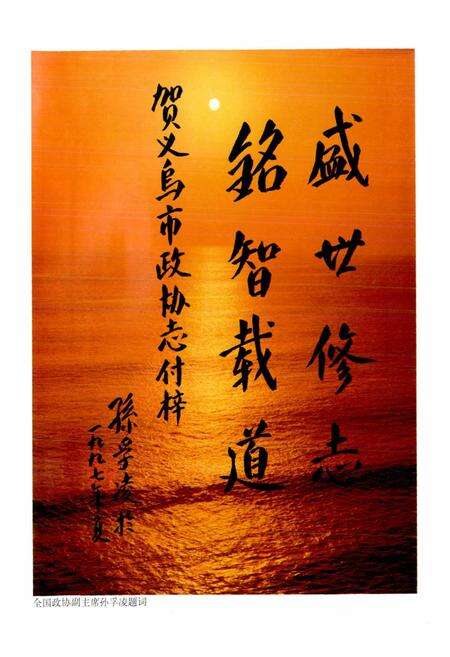 盛世修志
銘智载道
贺义乌市政协志付梓
孫孚凌於
一九九七年夏
全国政协副主席孙孚凌题词